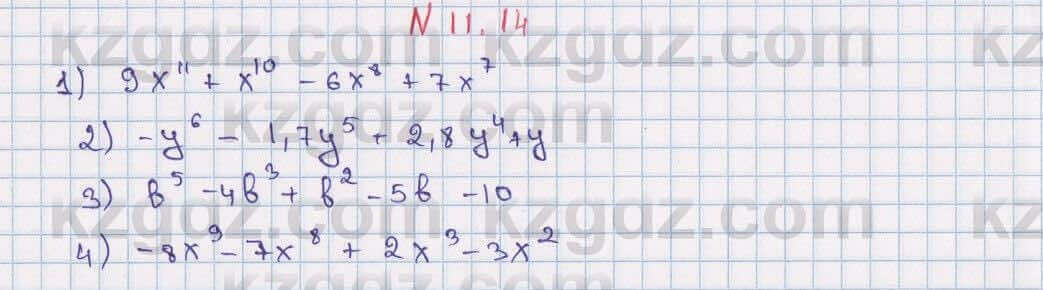 N 11.14
1) 9x¹¹ + x¹⁰ - 6x⁸ + 7x⁷
2) -y⁶ - 1,7y⁵ + 2,8y⁴ + y
3) b⁵ - 4b³ + b² - 5b - 10
4) -8x⁹ - 7x⁸ + 2x³ - 3x²
kzgdz.com kzgdz.com kz
kzgdz.com
kzgdz.com kzgdz.com kz